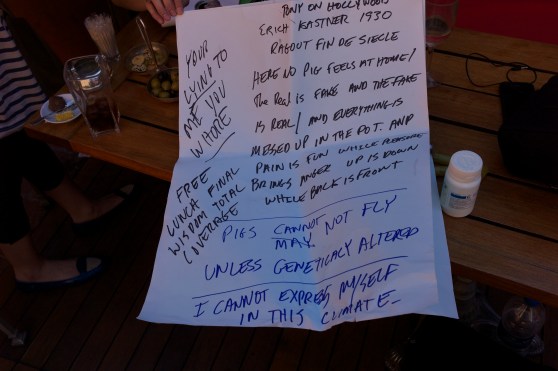 PONY ON HOLLYWOOD
ERICH KASTNER 1930
RAGOUT FIN DE SIECLE
HERE NO PIG FEELS AT HOME/
The ReaL is FAKE AND THE FAKE
IS REAL/ AND EVERYTHING IS
MESSED UP IN THE POT. AND
PAIN IS FUN WHILE PLEASURE
BRINGS ANGER UP IS DOWN
WHILE BACK IS FRONT
PIGS CANNOT NOT FLY
MAY
UNLESS GENETICALY ALTERED
I CANNOT EXPRESS MYSELF
IN THIS CLIMATE_
YOUR
LYING TO
ME YOU
WHORE
FREE
LUNCH FINAL
WISDOM TOTAL
COVERAGE